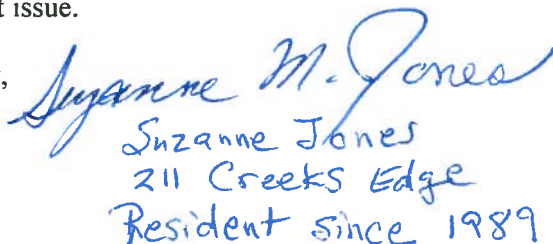 t issue.
,
Suzanne M. Jones
Suzanne Jones
211 Creeks Edge
Resident since 1989